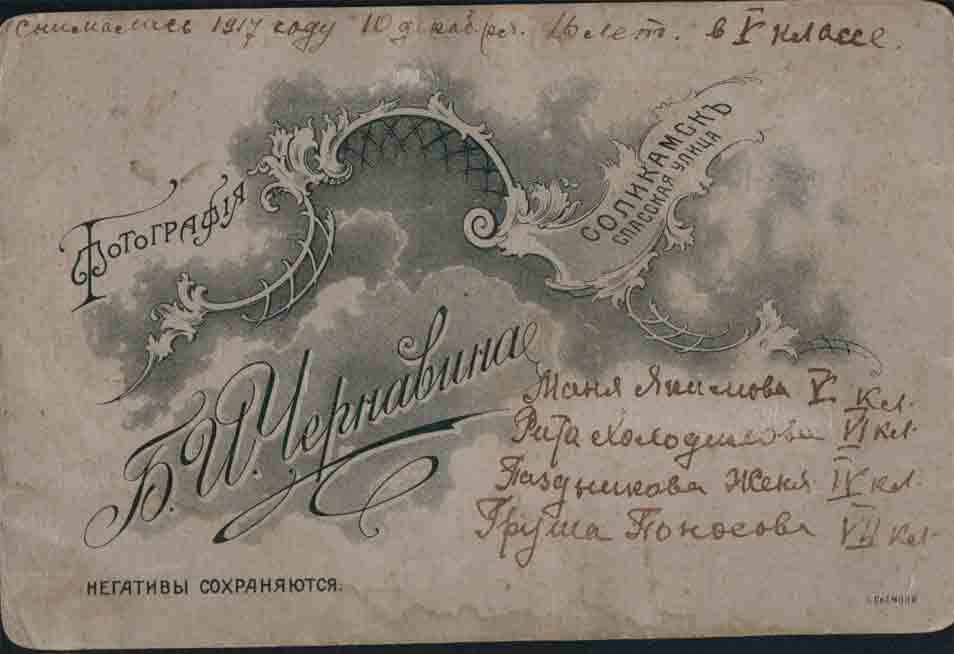 Снимались 1917 году 10 декабря. 16 лет. в V классе.
Фотографія
СОЛИКАМСКЪ
СПАССКАЯ УЛИЦА
Б. И. Чернавина
Маня Якимова V кл.
Рита Холодилова VI кл.
Паздникова Женя IV кл.
Груша Поносова VII кл.
НЕГАТИВЫ СОХРАНЯЮТСЯ.